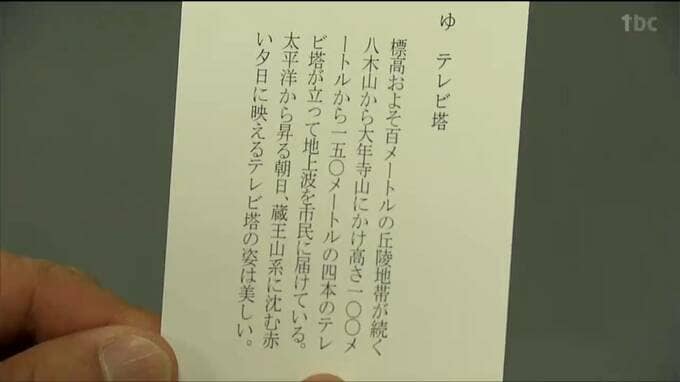 tbc
ゆ テレビ塔
標高およそ百メートルの丘陵地帯が続く
八木山から大年寺山にかけ高さ一〇〇メ
ートルから一五〇メートルの四本のテレ
ビ塔が立って地上波を市民に届けている。
太平洋から昇る朝日、蔵王山系に沈む赤
い夕日に映えるテレビ塔の姿は美しい。